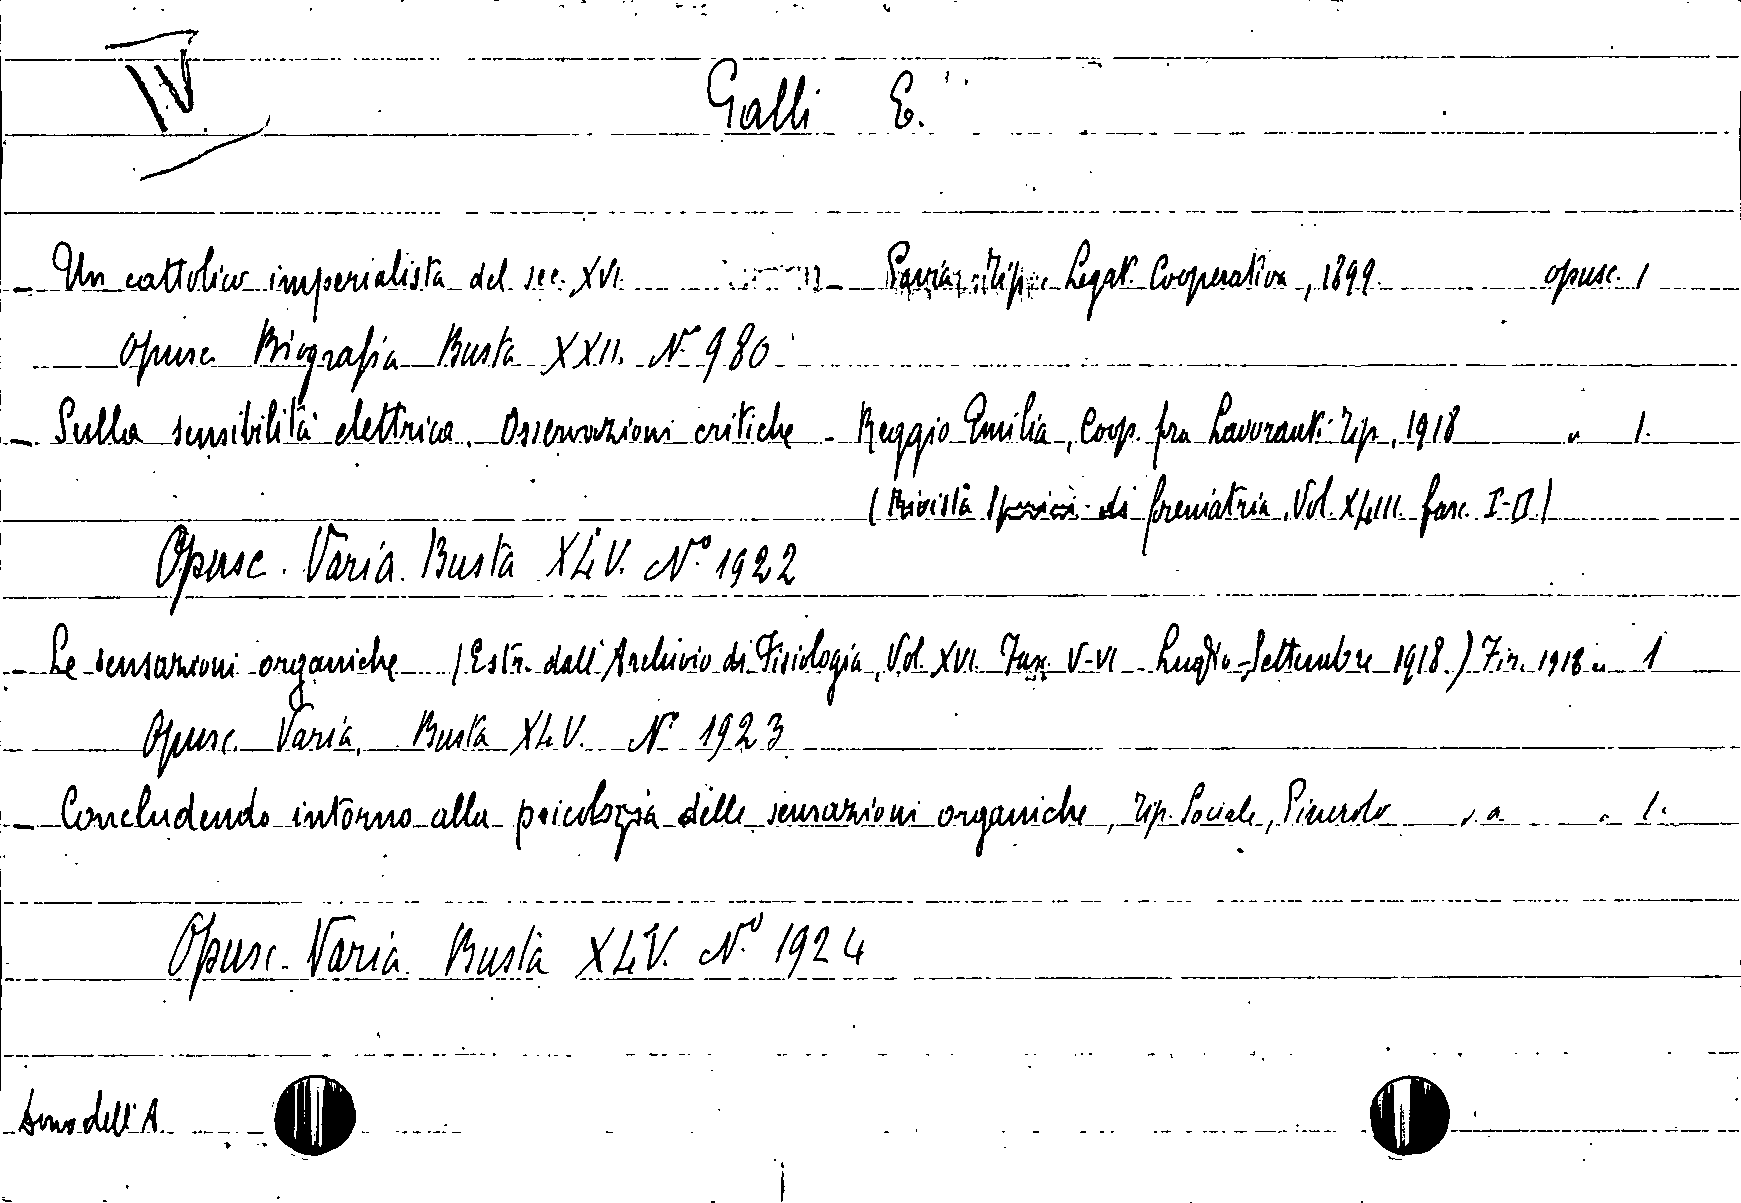 IV
Galli E.
- Un cattolico imperialista del sec. XVI. - Pavia, Tip. Legat. Cooperativa, 1899. opusc. 1
Opusc. Biografia Busta XXII. N. 980
- Sulla sensibilità elettrica. Osservazioni critiche - Reggio Emilia, Coop. fra Lavoranti Tip., 1918 " 1.
(Rivista di freniatria, Vol. XLIII. fasc. I-II)
Opusc. Varia. Busta XLV. N.° 1922
- Le sensazioni organiche (Estr. dall'Archivio di Fisiologia, Vol. XVI. Fasc. V-VI Luglio-Settembre 1918.) Fir. 1918 " 1
Opusc. Varia. Busta XLV. N.° 1923
- Concludendo intorno alla psicologia delle sensazioni organiche, Tip. Sociale, Pinerolo s. a. " 1.
Opusc. Varia Busta XLV. N.° 1924
Dono dell'A.